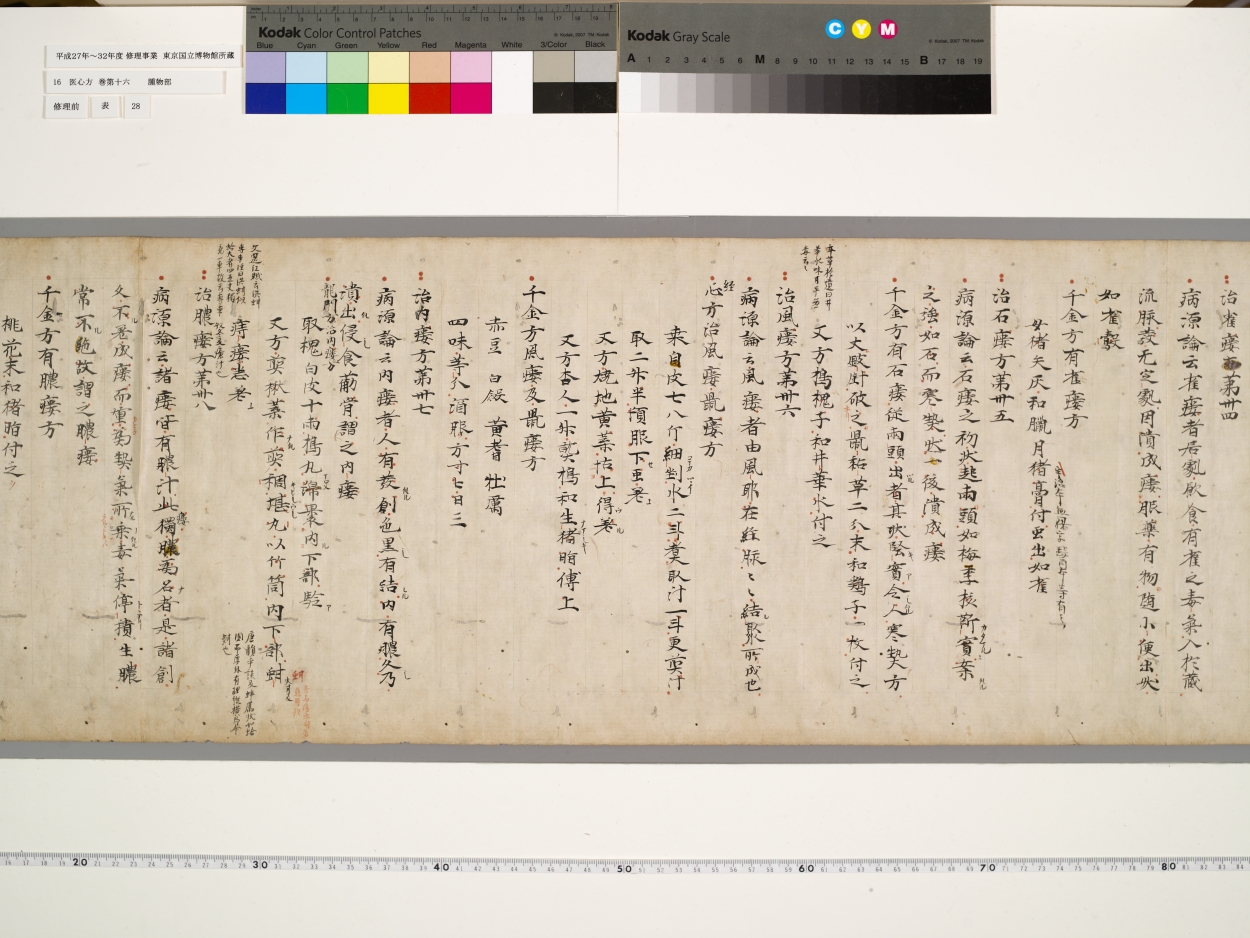 平成27年～32年度 修理事業 東京国立博物館所蔵
16 医心方 巻第十六 腫物部
修理前 表 28
Kodak Color Control Patches
Blue Cyan Green Yellow Red Magenta White 3/Color Black
Kodak Gray Scale
C Y M
A 1 2 3 4 5 6 M 8 9 10 11 12 13 14 15 B 17 18 19
治雀瘻方第卅四
病源論云雀瘻者居家飲食有雀之毒氣入於蔵
流脉發无定處因潰成瘻服藥有物随小便出状
如雀㲉
千金方有雀瘻方
母猪矢灰和臘月猪膏付虫出如雀
治石瘻方第卅五
病源論云石瘻之初状起兩頭如梅李核所實牢
之強如石而寒熱然後潰成瘻
千金方有石瘻従兩頭出者其状堅實令人寒熱方
以大鈹針破之鼠粘草二分末和鷄子一枚付之
又方槝槐子和井華水付之
治風瘻方第卅六
病源論云風瘻者由風邪在経脉〻結聚所成也
経心方治風瘻鼠瘻方
桒白皮七八斤細剉水二斗煮取汁一斗更煎汁
取二升半頓服下虫老
又方焼地黄葉怗上得老
又方杏人一升熬槝和生猪脂傅上
千金方風瘻及鼠瘻方
赤豆 白蘞 黄耆 牡厲
四味等分酒服方寸七日三
治内瘻方第卅七
病源論云内瘻者人有發創色黒有結内有膿久乃
潰出侵食筋骨謂之内瘻
龍門方治内瘻方
取槐白皮十兩槝丸綿裹内下部験
又方煎楸葉作煎稠堪丸以竹筒内下部
治膿瘻方第卅八
病源論云諸瘻皆有膿汁此獨膿為名者是諸創
久不差成瘻而重為熱氣所乗毒氣停積生膿
常不絶故謂之膿瘻
千金方有膿瘻方
桃花末和猪脂付之
20 30 40 50 60 70 80